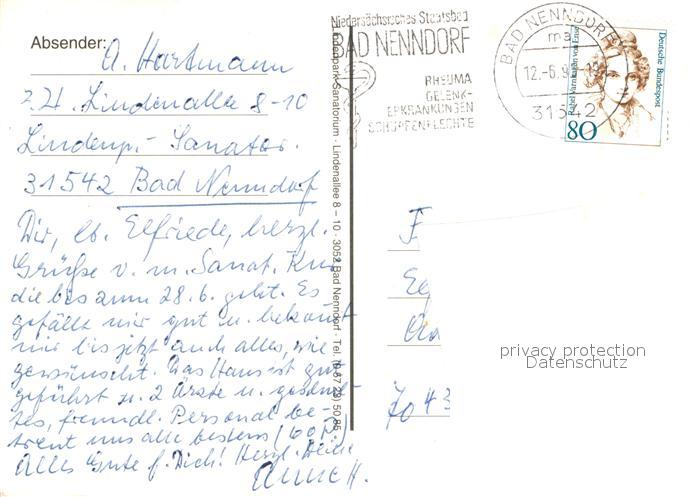 Absender: A. Hartmann
z.Zt. Lindenallee 8-10
Lindenp.- Sanator.
31542 Bad Nenndorf
Dir, lb. Elfriede, herzl.
Grüße v. m. Sanat. Kur
die bis zum 28.6. geht. Es
gefällt mir gut u. bekommt
mir bis jetzt auch alles, wie
gewünscht. Das Haus ist gut
geführt u. 2 Ärzte u. geschul-
tes, freundl. Personal be-
treut uns alle bestens (60 P.)
Alles Gute f. Dich! Herzl. Deine
Anne H.
Lindenpark-Sanatorium · Lindenallee 8 – 10 · 3052 Bad Nenndorf · Tel. (0 57 23) 50 85
Niedersächsisches Staatsbad
BAD NENNDORF
RHEUMA
GELENK-
ERKRANKUNGEN
SCHUPPENFLECHTE
BAD NENNDORF
ma
12.-6.9
31542
Deutsche Bundespost
Rahel Varnhagen von Ense
80
F
Eg
70 43
privacy protection
Datenschutz